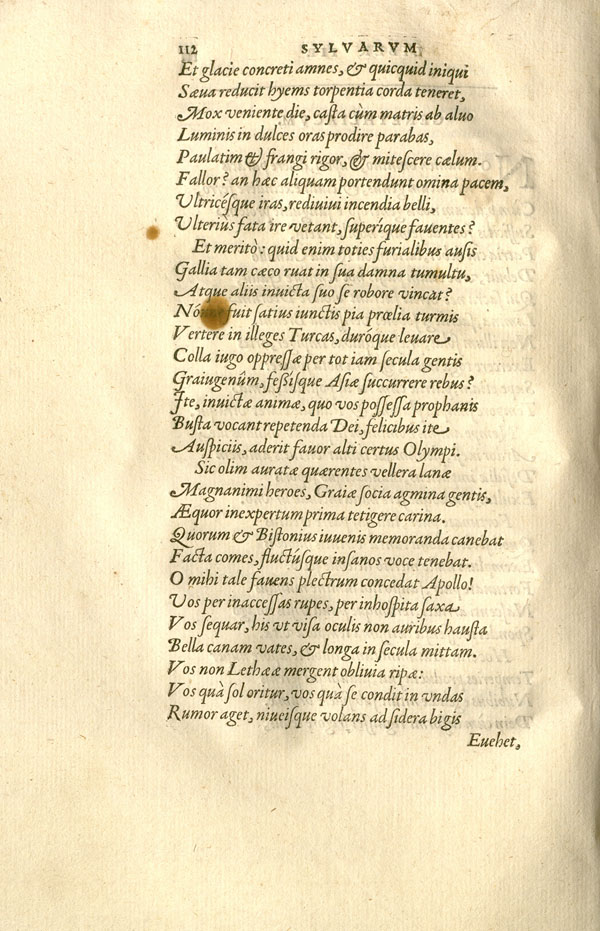 112 SYLVARVM
Et glacie concreti amnes, & quicquid iniqui
Sæua reducit hyems torpentia corda teneret,
Mox veniente die, casta cùm matris ab aluo
Luminis in dulces oras prodire parabas,
Paulatim & frangi rigor, & mitescere cælum.
Fallor? an hæc aliquam portendunt omina pacem,
Vltricésque iras, rediuiui incendia belli,
Vlteriùs fata ire vetant, superíque fauentes?
Et meritò: quid enim toties furialibus ausis
Gallia tam cæco ruat in sua damna tumultu,
Atque aliis inuicta suo se robore vincat?
fuit satius iunctis pia prœlia turmis
Vertere in illeges Turcas, duróque leuare
Colla iugo oppressæ per tot iam secula gentis
Graiugenûm, fessísque Asiæ succurrere rebus?
Ite, inuictæ animæ, quo vos possessa prophanis
Busta vocant repetenda Dei, felicibus ite
Auspiciis, aderit fauor alti certus Olympi.
Sic olim auratæ quærentes vellera lanæ
Magnanimi heroes, Graiæ socia agmina gentis,
Æquor inexpertum prima tetigere carina.
Quorum & Bistonius iuuenis memoranda canebat
Facta comes, fluctúsque insanos voce tenebat.
O mihi tale fauens plectrum concedat Apollo!
Vos per inaccessas rupes, per inhospita saxa
Vos sequar, his vt visa oculis non auribus hausta
Bella canam vates, & longa in secula mittam.
Vos non Lethææ mergent obliuia ripæ:
Vos quà sol oritur, vos quà se condit in vndas
Rumor aget, niueísque volans ad sidera bigis
Euehet,